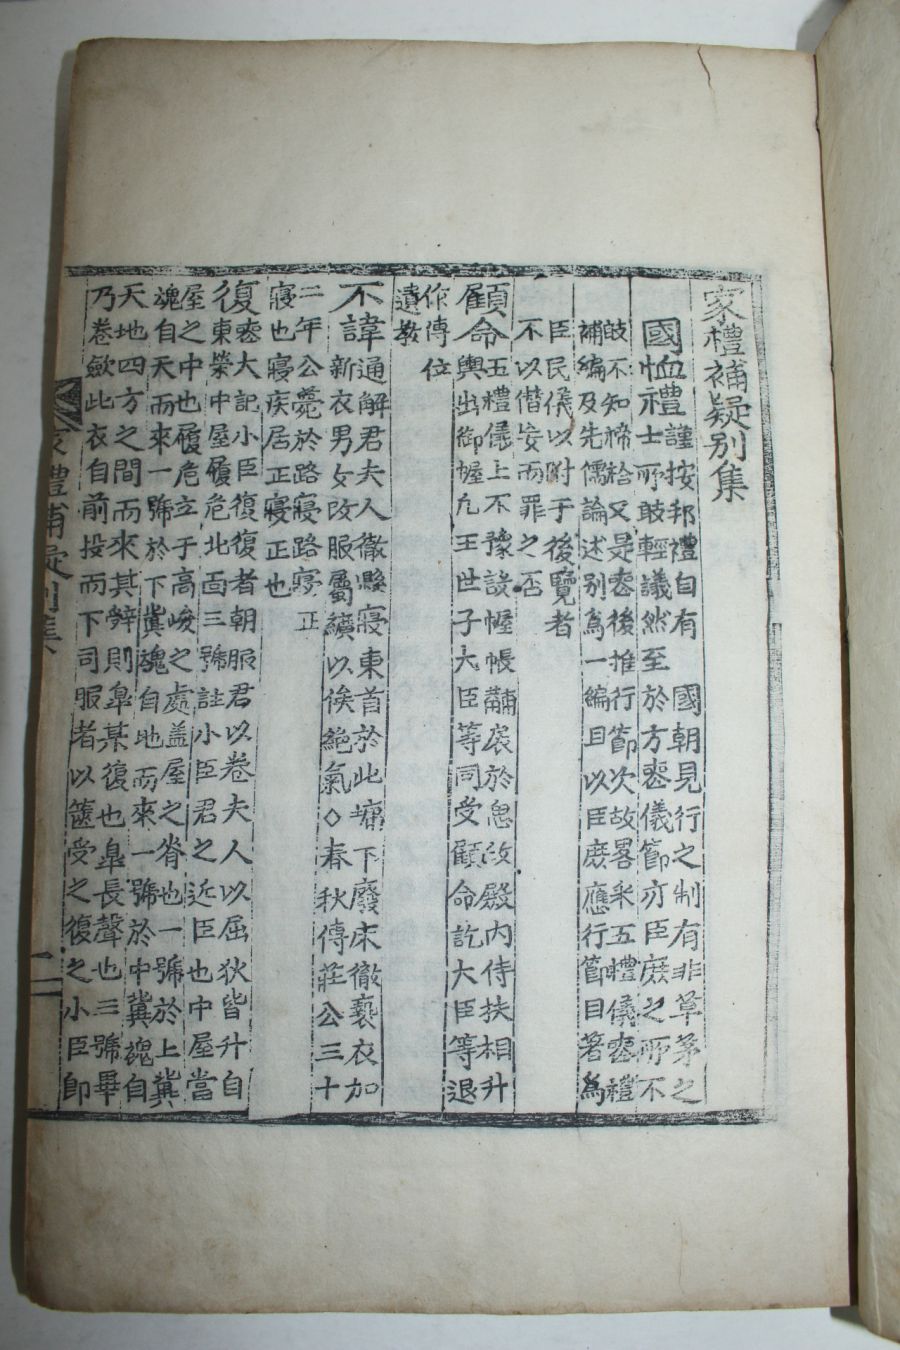 家禮補疑别集
國恤禮謹按邦禮自有　國朝見行之制有非草茅之
士所敢輕議然至於方喪儀節亦臣庶之所不
敢不知稀袷又是喪後推行節次故畧采五禮儀喪禮
補編及先儒論述别爲一編且以臣庶應行節目著爲
臣民儀以附于後覽者
不以僭妄而罪之否
顧命五禮儀上不豫設幄帳黼扆於思政殿內侍扶相升
輿出御幄凢王世子大臣等同受顧命訖大臣等退
作傳位
遺敎
不諱通解君夫人徹縣寢東首於北墉下廢床徹褻衣加
新衣男女改服屬纊以俟絶氣◇春秋傳莊公三十
二年公薨於路寢路寢正
寢也寢疾居正寢正也
復喪大記小臣復復者朝服君以卷夫人以屈狄皆升自
東榮中屋履危北面三號註小臣君之近臣也中屋當
屋之中也履危立于高峻之處盖屋之脊也一號於上冀
魂自天而來一號於下冀魂自地而來一號於中冀魂自
天地四方之間而來其辭則皐某復也皐長聲也三號畢
乃卷斂此衣自前投而下司服者以篋受之復之小臣卽
家禮補疑别集
二